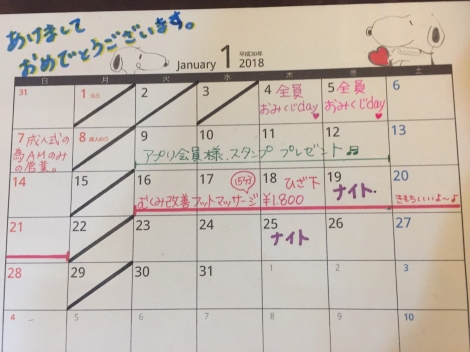 あけまして
おめでとうございます。
January 1 平成30年 2018
日 月 火 水 木 金 土
31 1 2 3 4 5 6
全員
おみくじday
全員
おみくじday
7 8 9 10 11 12 13
成人式の
為AMのみ
の営業。
アプリ会員様、スタンプ プレゼント♫
14 15 16 17 18 19 20
むくみ改善フットマッサージ ひざ下
¥1.800
ナイト.
きもちいいよ〜♪
21 22 23 24 25 26 27
ナイト
28 29 30 31 1 2 3
4 5 6 7 8 9 10